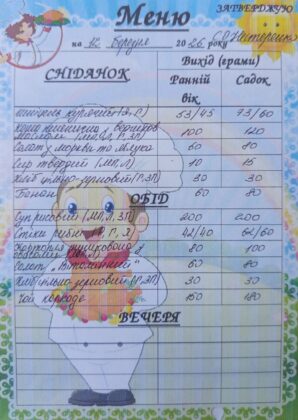 ЗАТВЕРДЖУЮ
Меню
на 12 березня 2026 року
Вихід (грами)
СНІДАНОК Ранній вік Садок
53/45 73/60
Каша пшенична з вершковим 100 120
маслом
Салат з моркви та яблука 60 80
Сир твердий (МП, Л) 10 15
Хліб цільно-зерновий (Г, ЗП) 30 30
Банан 60 80
ОБІД
Суп рисовий (МП, Л, ЗП) 200 200
рибні (Г, Р, Я) 42/40
80 100
Салат „Вітамінний" 60 80
Хліб цільно-зерновий (Г, ЗП) 30 30
Чай каркаде 150 180
ВЕЧЕРЯ